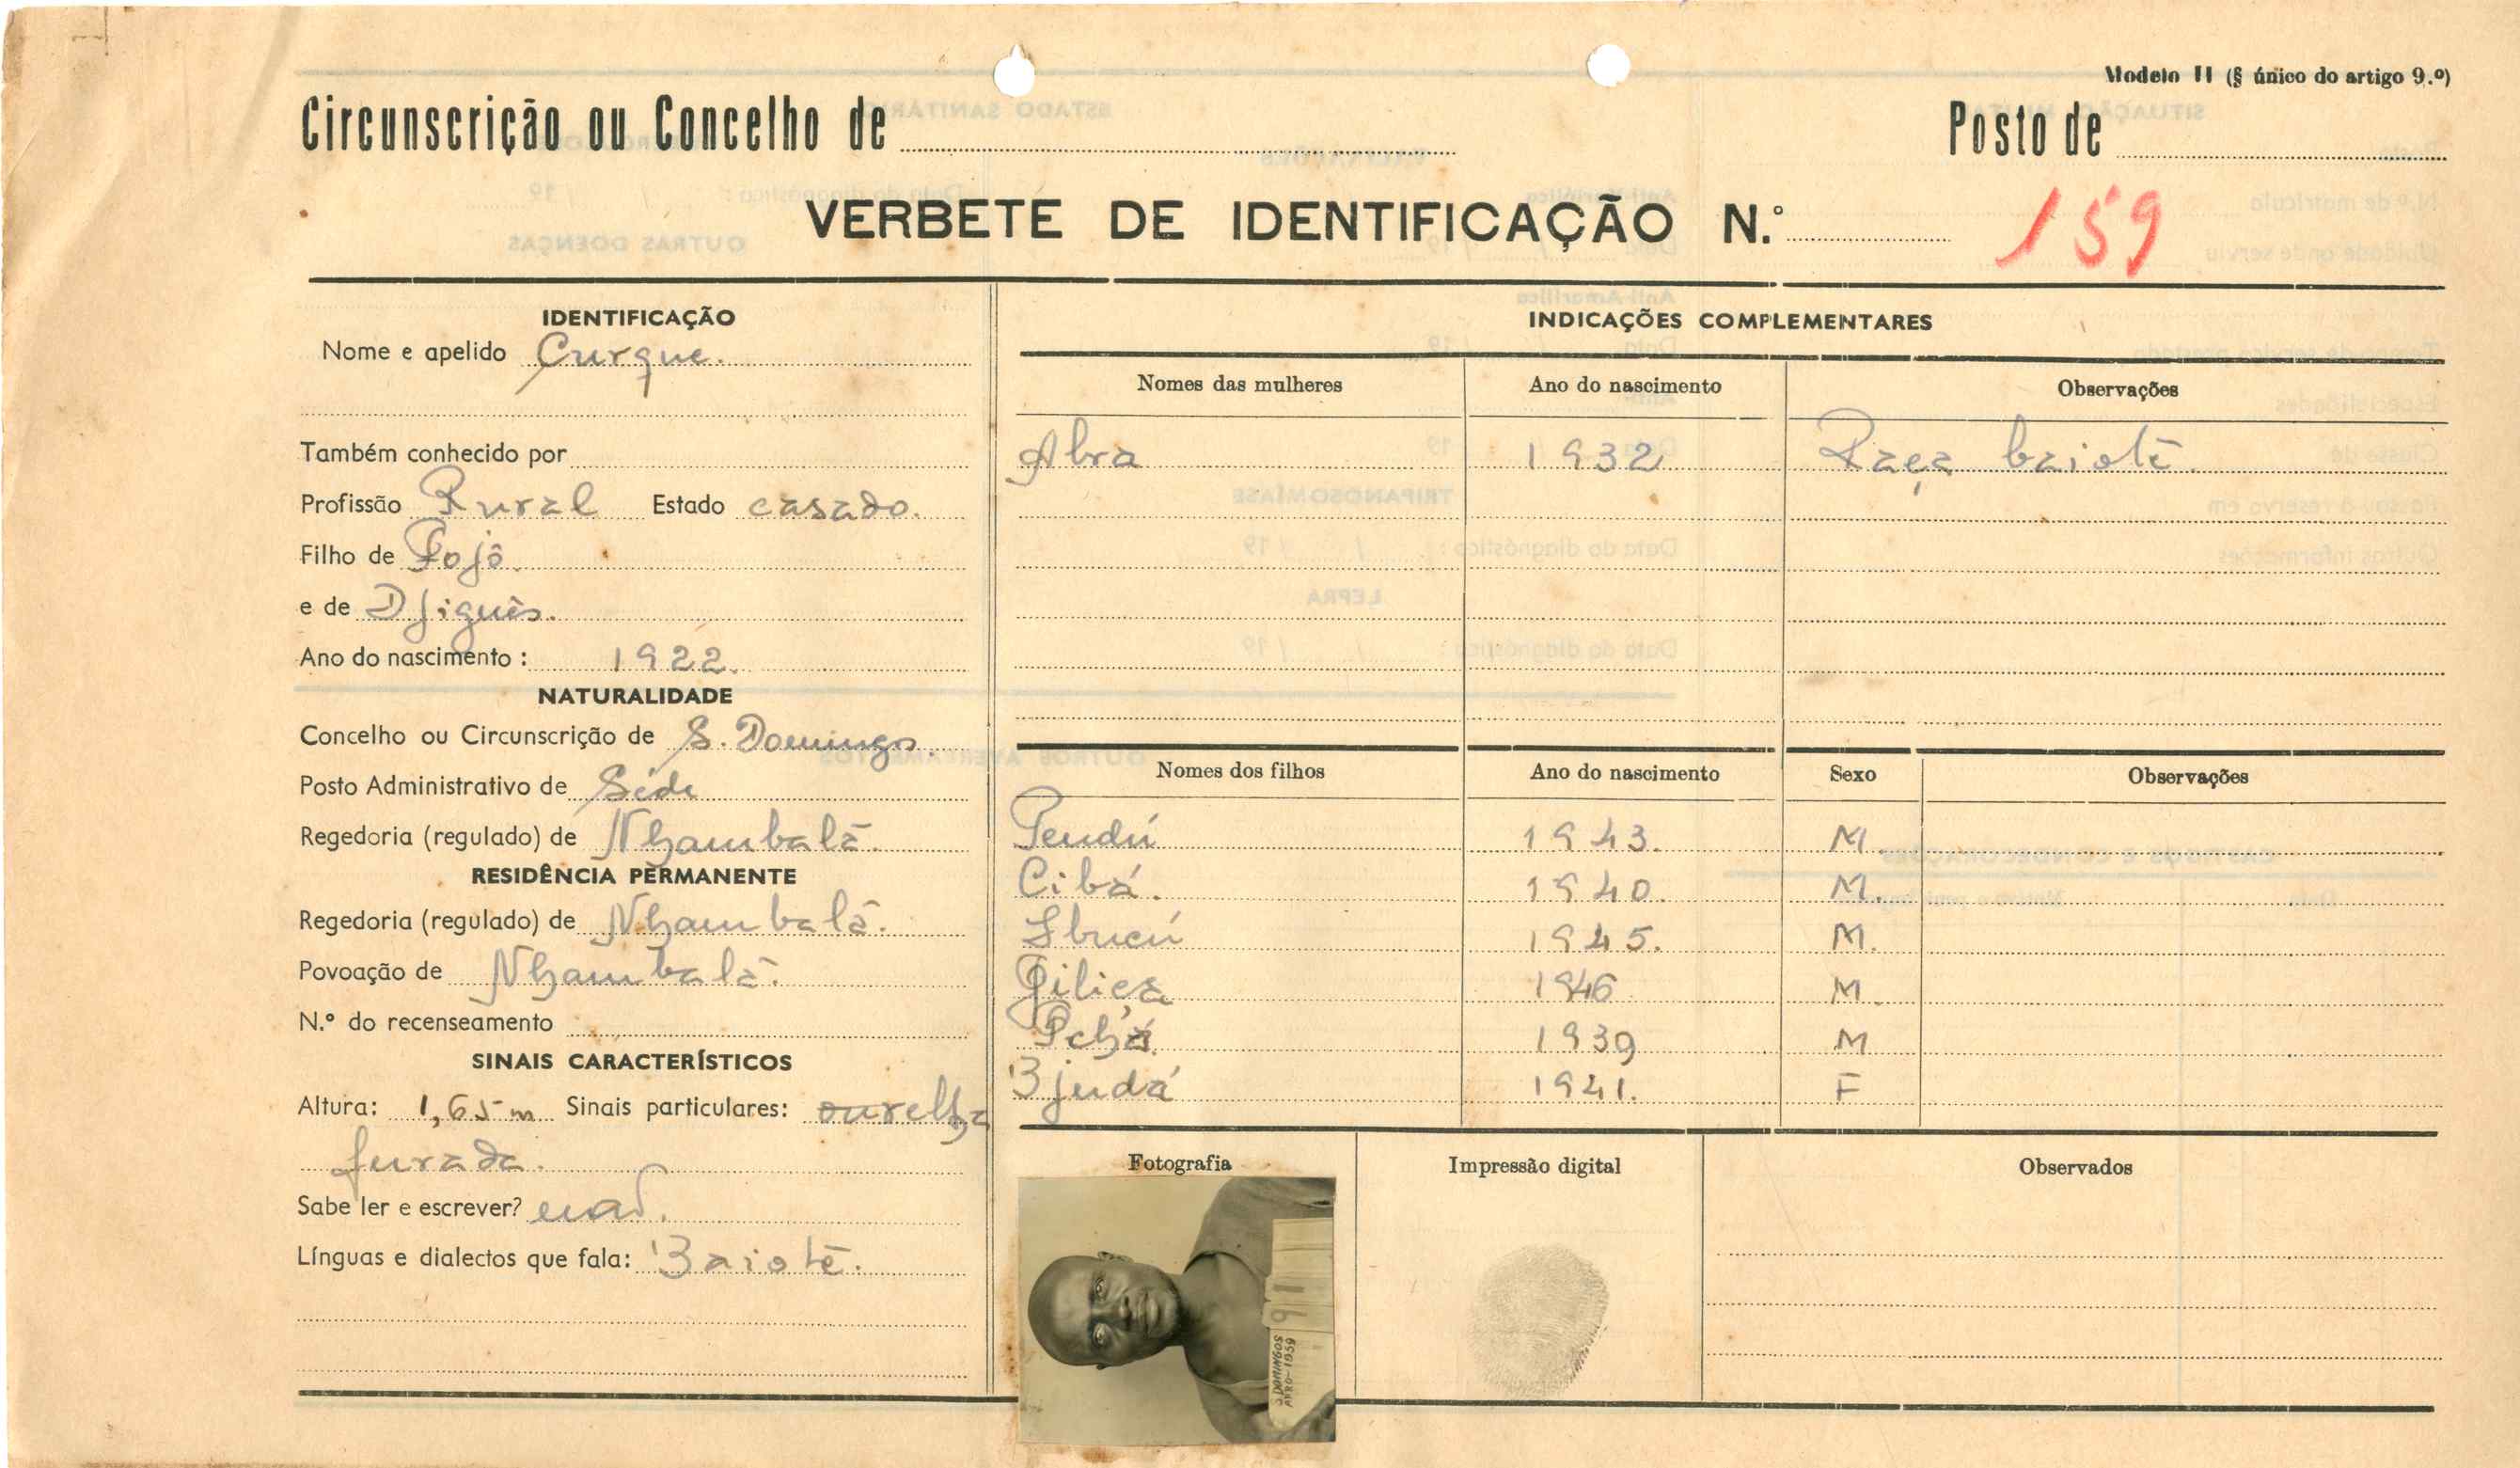 Modelo II (§ único do artigo 9.º)
Circunscrição ou Concelho de
Posto de
VERBETE DE IDENTIFICAÇÃO N.º 159
IDENTIFICAÇÃO
Nome e apelido Curque.
Também conhecido por
Profissão Rural Estado casado.
Filho de Fojô.
e de Djiguês.
Ano do nascimento: 1922.
NATURALIDADE
Concelho ou Circunscrição de S. Domingos.
Posto Administrativo de Séde
Regedoria (regulado) de Nhambalã.
RESIDÊNCIA PERMANENTE
Regedoria (regulado) de Nhambalã.
Povoação de Nhambalã.
N.º do recenseamento
SINAIS CARACTERÍSTICOS
Altura: 1,65 m Sinais particulares: ourelha
furada.
Sabe ler e escrever? não.
Línguas e dialectos que fala: Baiotê.
INDICAÇÕES COMPLEMENTARES
Nomes das mulheres Ano do nascimento Observações
Abra 1932 Raça baiotê.
Nomes dos filhos Ano do nascimento Sexo Observações
Pendú 1943. M.
Cibá. 1940. M.
Sbucú 1945. M.
Giliça 1946 M.
1939 M
Bjudá 1941. F
Fotografia Impressão digital Observados
S. DOMINGOS
1959